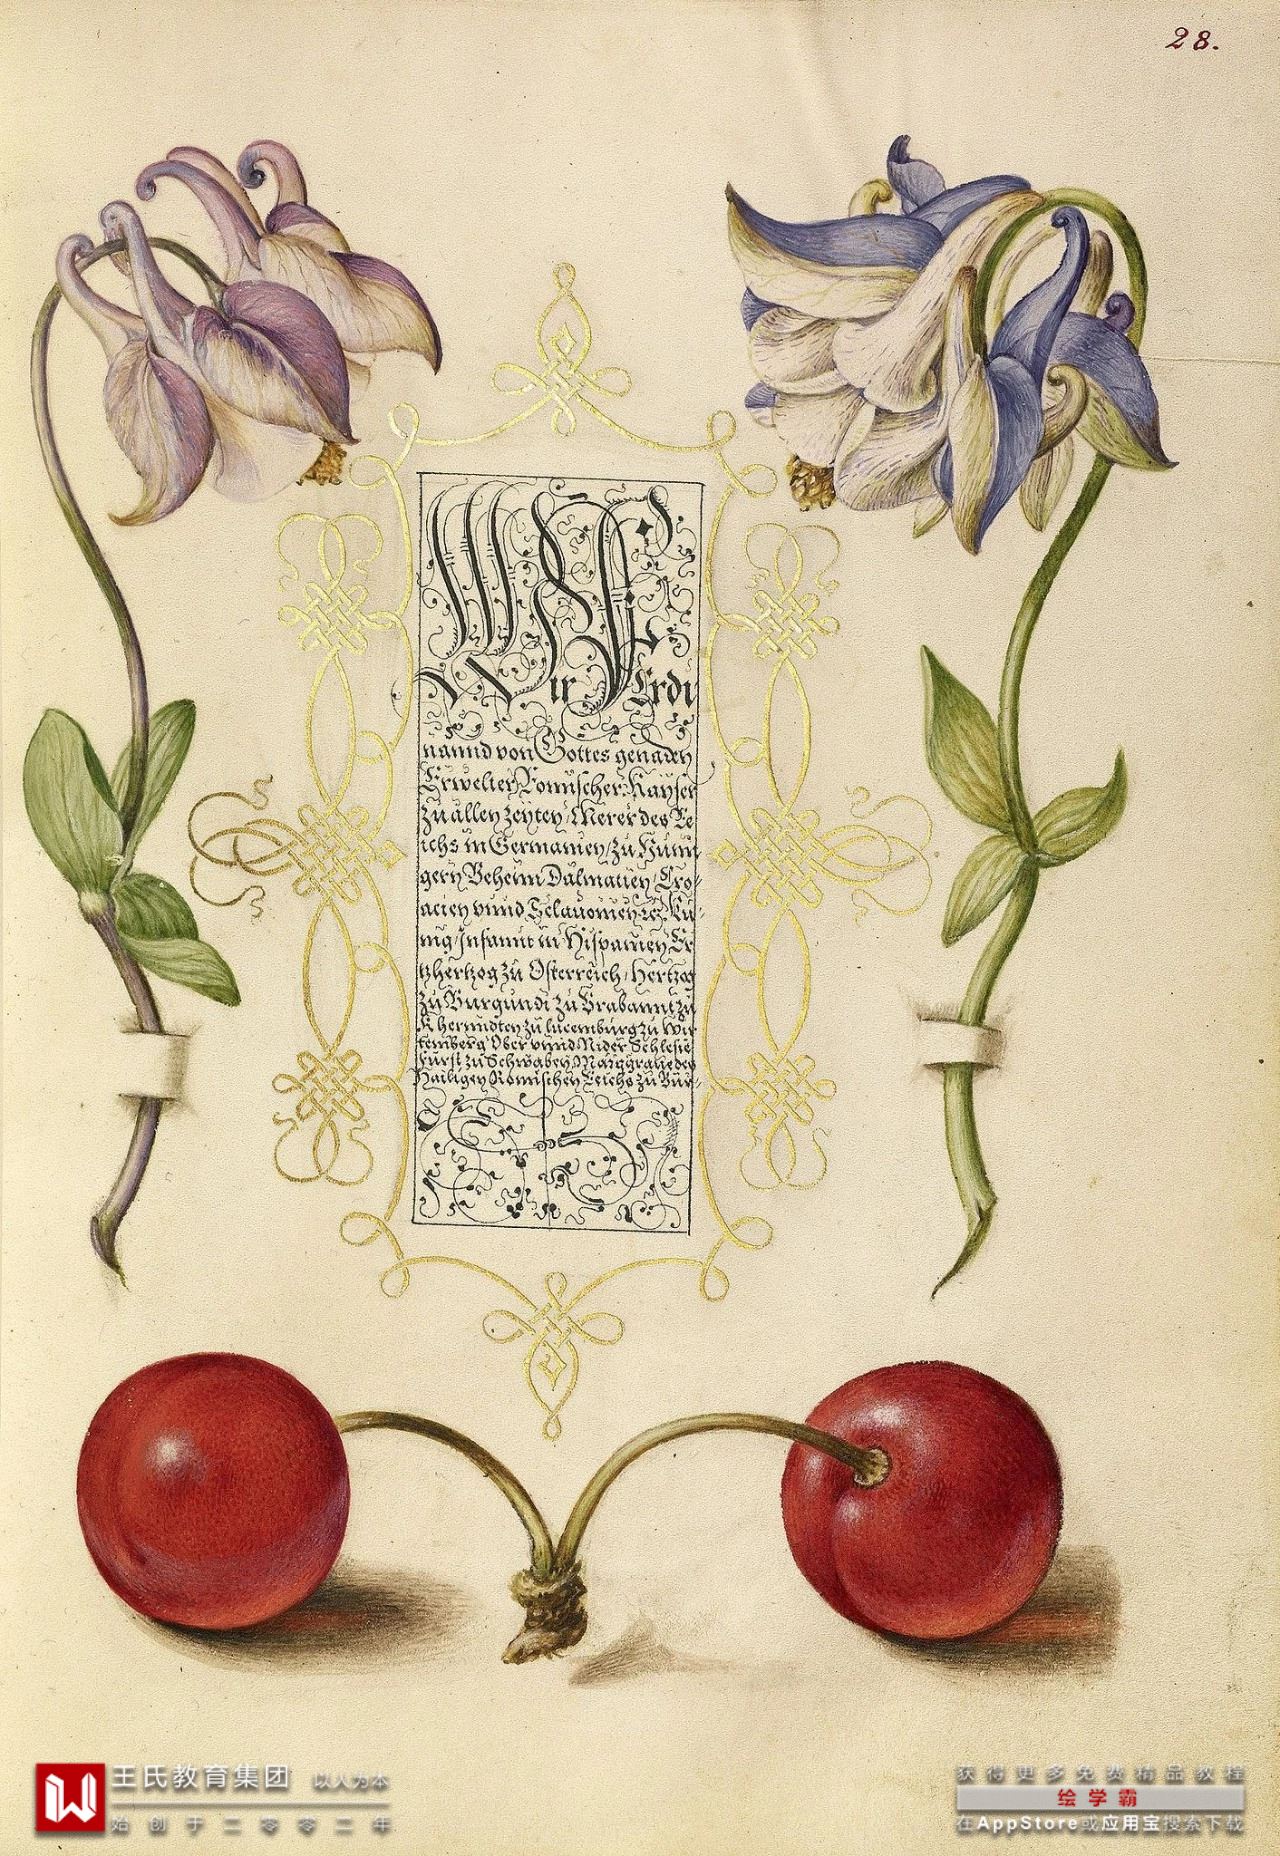 28.
Wir Ferdi
nannd von Gottes genaden
Erwelter Romischer Kayser
zu allen zeyten Merer des Re
ichs in Germanien zu Hunn
gern Beheim Dalmatien Cro/
acien vnnd Sclauonien &c. Kü-
nig Infannt in Hispanien Er
tzhertzog zu Osterreich Hertzog
zu Burgundi zu Brabannt zu
zu Lucemburg zu Wir
temberg Ober vnnd Nider Schlesie
Fürst zu Schwaben Marggraue des
Hailigen Römischen Reichs zu Bur-
王氏教育集团 以人为本
始创于二零零二年
获得更多免费精品教程
绘学霸
在AppStore或应用宝搜索下载